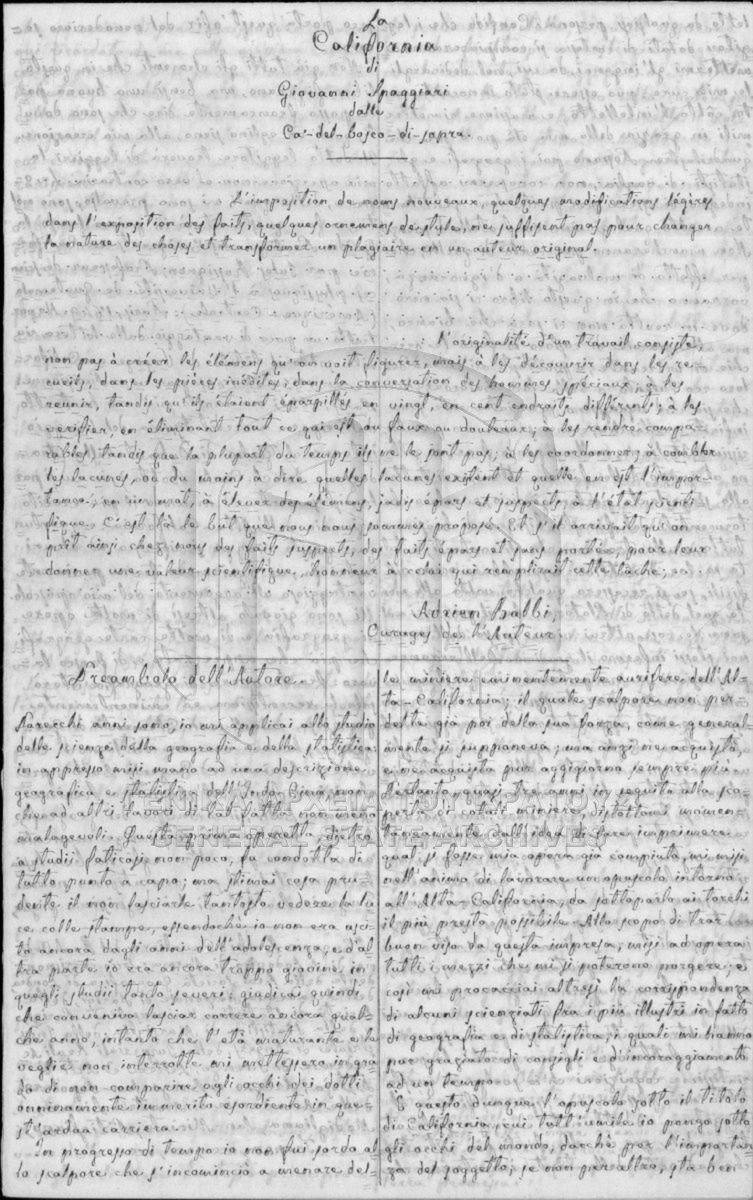 La
California
di
Giovanni Spaggiari
dalle
Ca'-del-bosco-di-sopra.
L'imposition de noms nouveaux, quelques modifications légères
dans l'exposition des faits, quelques ornemens de style, ne suffisent pas pour changer
la nature des choses et transformer un plagiaire en un auteur original.
L'originalité d'un travail consiste,
non pas à créer les élémens qu'on voit figurer, mais à les découvrir dans les re-
cueils, dans les pièces inédites, dans la conversation des hommes spéciaux, à les
réunir, tandis qu'ils étaient éparpillés en vingt, en cent endroits différents; à les
vérifier, en éliminant tout ce qui est ou faux ou douteux; à les rendre compa-
rables, tandis que la plupart du temps ils ne le sont pas; à les coordonner; à combler
les lacunes, ou du moins à dire quelles lacunes existent et quelle en est l'impor-
tance; en un mot, à élever des élémens, jadis épars et suspects, à l'état scienti-
fique. C'est là le but que nous nous sommes proposé. Et s'il arrivait qu'on
prît ainsi chez nous des faits suspects, des faits épars et sans portée, pour leur
donner une valeur scientifique, honneur à celui qui remplirait cette tâche;
Adrien Balbi,
Ouvrages de l'Auteur
Preambolo dell'Autore.
Parecchi anni sono, io mi applicai allo studio
delle scienze della geografia e della statistica:
in appresso misi mano ad una descrizione
geografica e statistica dell'Indo-Cina, non
che ad altri lavori di tal fatta non meno
malagevoli. Questa prima operetta, dietro
a studii faticosi non poco, fu condotta di
tutto punto a capo; ma stimai cosa pru-
dente il non lasciarle tantosto vedere la lu-
ce colle stampe, essendochè io non era usci-
to ancora dagli anni dell'adolescenza, e d'al-
tra parte io era ancora troppo giovine in
quegli studii tanto severi: giudicai quindi
che conveniva lasciar correre ancora qual-
che anno, intanto che l'età maturante e le
veglie non interrotte mi mettessero in gra-
do di non comparire agli occhi dei dotti
onninamente immerito esordiente in que-
st'ardua carriera.
In progresso di tempo io non fui sordo al-
lo scalpore che s'incominciò a menare del-
le miniere eminentemente aurifere dell'Al-
ta-California; il quale scalpore non per-
dette già poi della sua forza, come general-
mente si supponeva; ma anzi ne acquistò,
e ne acquista pur aggigiorno sempre più
Pertanto, quasi tre anni in seguito alla sco-
perta di cotali miniere, distoltomi momen-
taneamente dall'idea di fare imprimere
qual si fosse mia opera già compiuta, mi misi
nell'animo di lavorare un opuscolo intorno
all'Alta-California, da sottoporlo ai torchi
il più presto possibile. Allo scopo di trar
buon viso da questa impresa, misi ad opera
tutti i mezzi che mi si poterono porgere; e
così mi procacciai altresì la corrispondenza
di alcuni scienziati fra i più illustri in fatto
di geografia e di statistica, i quali mi hanno
pur graziato di consigli e d'incoraggiamento
ad un tempo.
E questo dunque l'opuscolo sotto il titolo
di California, cui tutt'umile io pongo sotto
gli occhi del mondo, dacchè per l'importan-
za del soggetto, se non per altro, sta ben